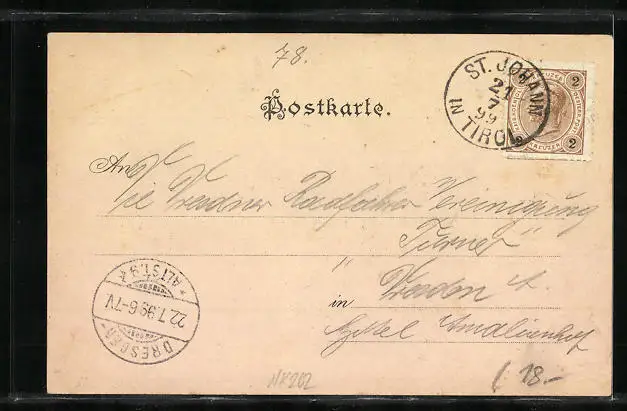 78.
Postkarte.
ST. JOHANN
21
7
99
IN TIROL
2 KREUZER 2
An
Die Dresdner Radfahrer Vereinigung
"Turner"
in Dresden A.
Hotel Amalienhof
DRESDEN-
22.7.99.6-7V.
* ALTST. 9 z
NK202
18.-